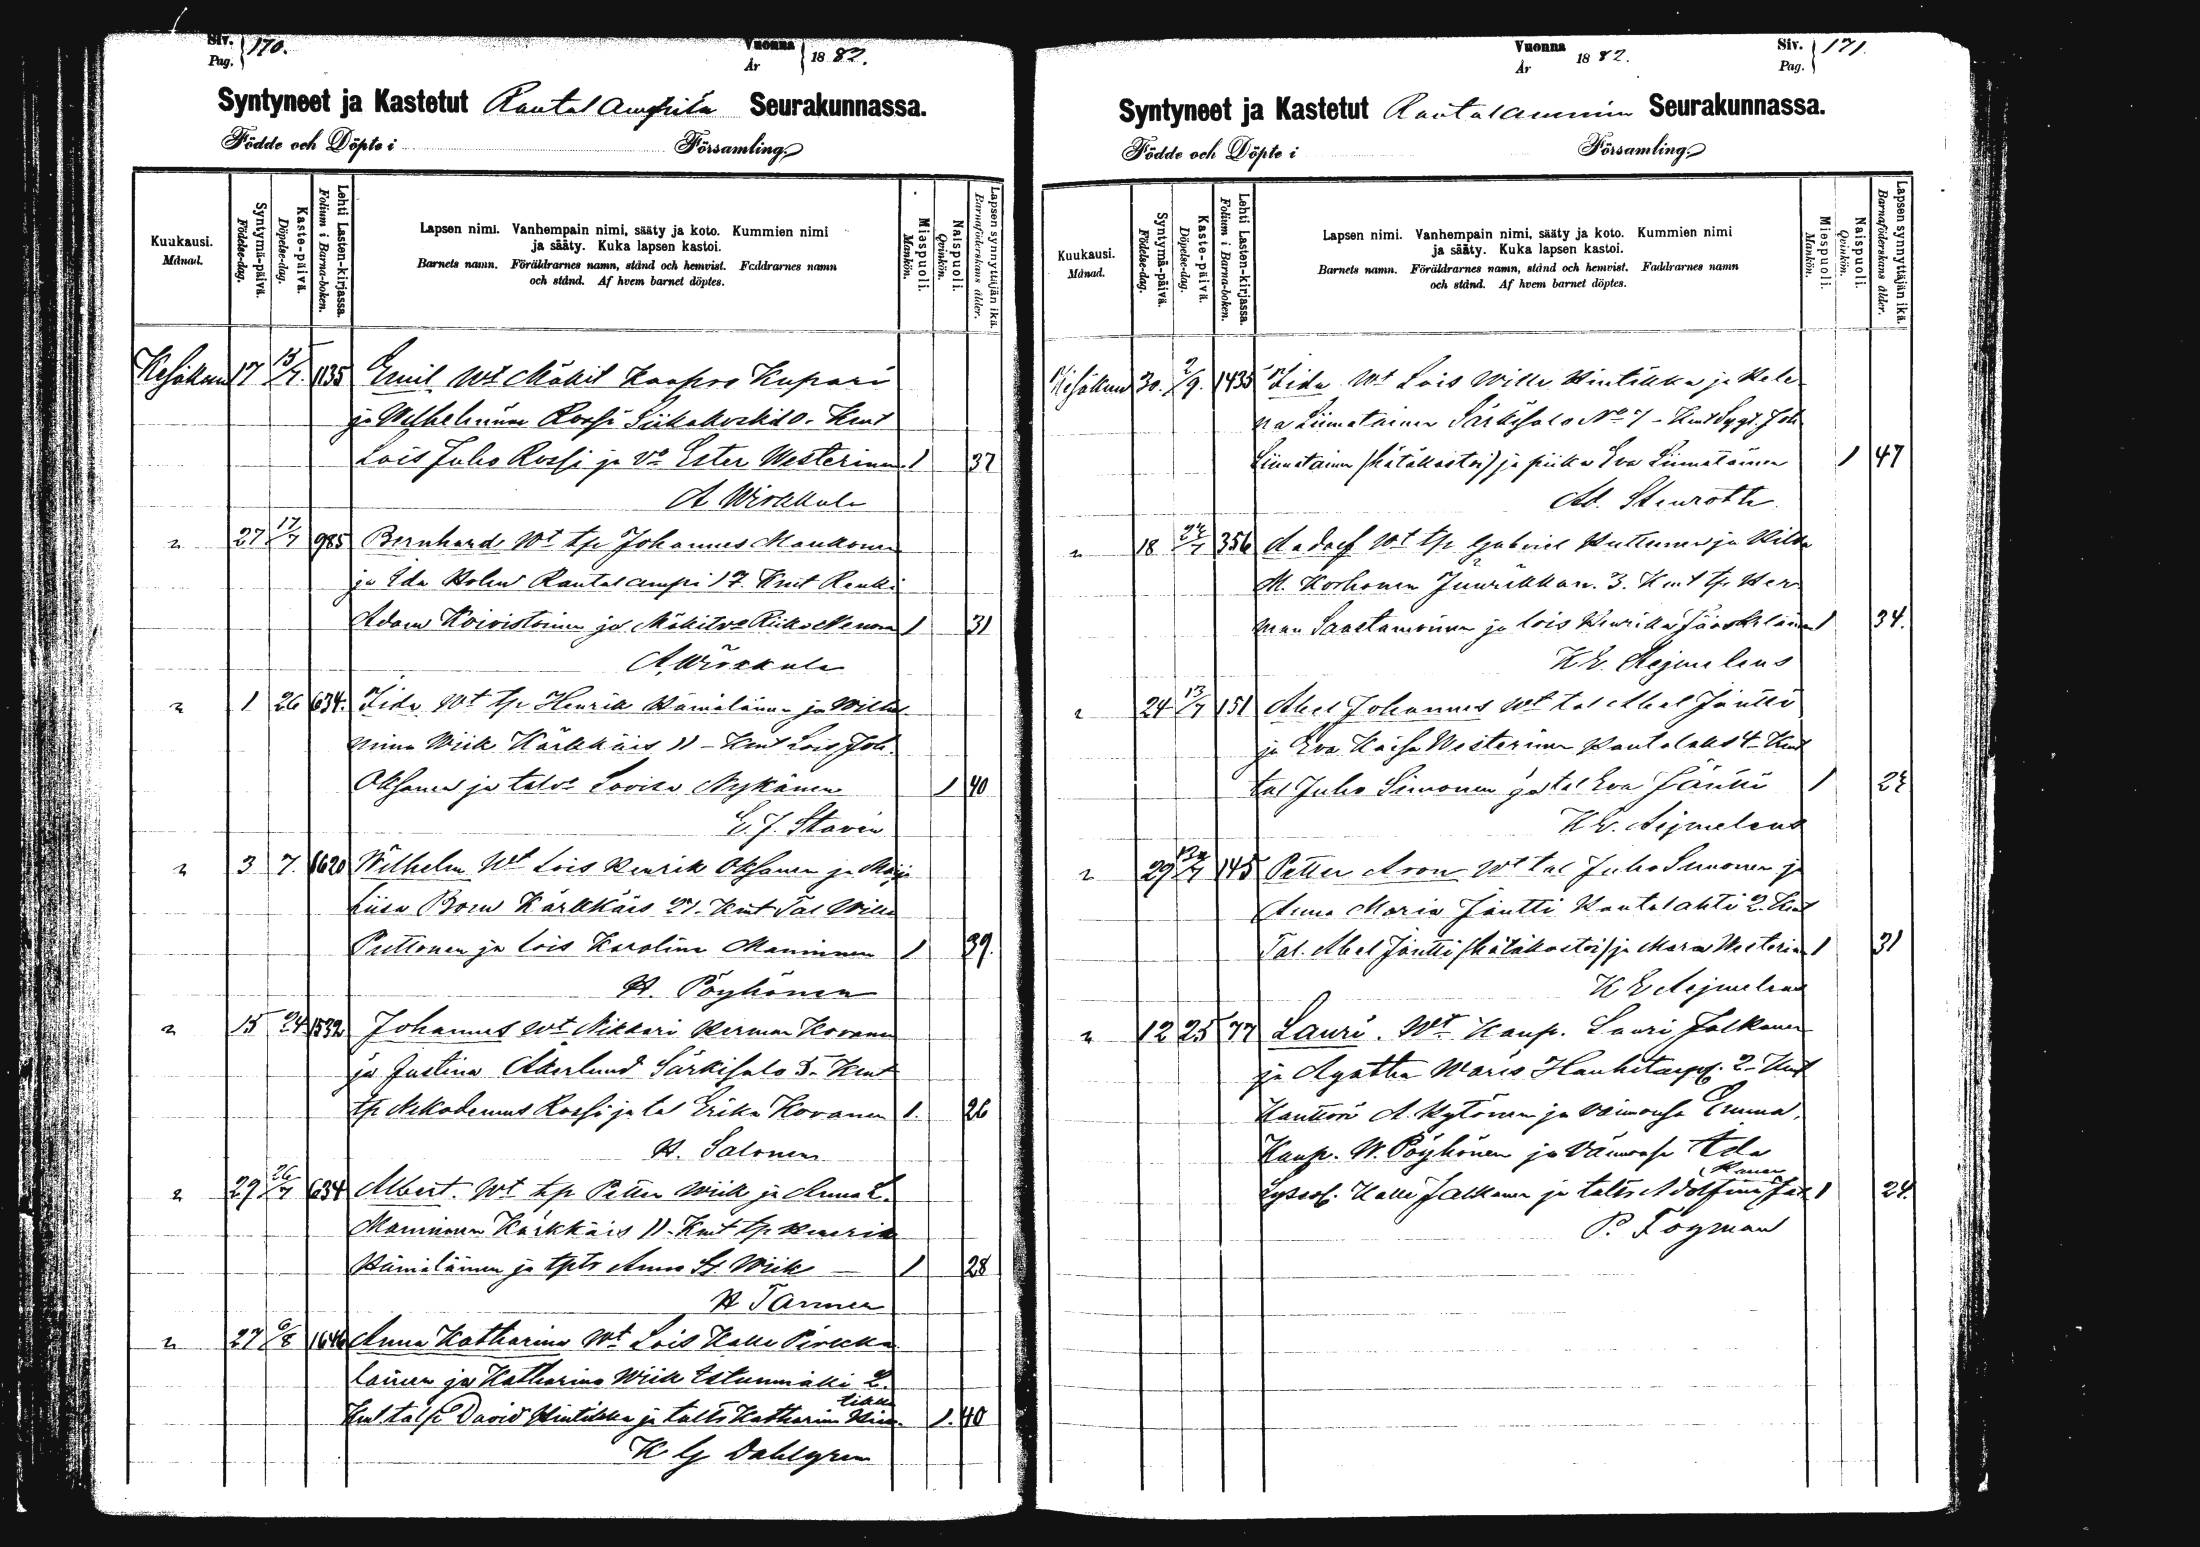 Siv.
Pag. 170.
Vuonna
År 1882.
Syntyneet ja Kastetut Rautalampila Seurakunnassa.
Födde och Döpte i Församling.
Kuukausi.
Månad.
Syntymä-päivä.
Födelse-dag.
Kaste-päivä.
Döpelse-dag.
Lehti Lasten-kirjassa.
Folium i Barna-boken.
Lapsen nimi. Vanhempain nimi, sääty ja koto. Kummien nimi
ja sääty. Kuka lapsen kastoi.
Barnets namn. Föräldrarnes namn, stånd och hemvist. Faddrarnes namn
och stånd. Af hvem barnet döptes.
Miespuoli.
Mankön.
Naispuoli.
Qvinkön.
Lapsen synnyttäjän ikä.
Barnaföderskans ålder.
Kesäkuu 17 15/7. 1135 Emil Wt Mäkit Kaapro Kupari
ja Wilhelmiina Rossi Siikakoski 10. Kmt
Lois Juho Rossi ja vo Ester Westerinen 1 37
A Wirkkula
" 27 17/7 985 Bernhard Wt tp Johannes Maukonen
ja Ida Holm Rautalampi 17. Kmt Renki
Adam Koivistoinen ja Mäkitvo Riika Nenonen 1 31
A. Wirkkula
" 1 26 634. Iida Wt tp Henrik Hämäläinen ja Wilhel-
mina Wiik Kärkkäis 11 - Kmt Lois Joh.
Oksanen ja talvo Lovisa Nykänen 1 40
E. J. Stavén
" 3 7. 1620 Wilhelm Wt Lois Henrik Oksanen ja Maija
Liisa Bovm Kärkkäis 21. Kmt Tal Wille
Puttonen ja lois Karolina Manninen 1 39.
H. Pöyhönen
" 15 24 1532 Johannes Wt Nikkari Herman Kovanen
ja Justina Åkerlund Särkisalo 5. Kmt
tp Nikodemus Rossi ja tal Erika Kovanen 1. 26
H. Salonen
" 29 26/7 634 Albert. Wt tp Petter Wiik ja Anna L.
Manninen Kärkkäis 11. Kmt tp Henrik
Hämäläinen ja tptr Anna St. Wiik 1 28
H Tarmen
" 27 6/8 1646 Anna Katharina Wt Lois Kalle Pirkka-
lainen ja Katharina Wiik Istunmäki 2.
Kmt. talp David Hintikka ja taltr Katharina Hin- tikka 1. 40
K G Dahlgren
Vuonna
År 1882.
Siv.
Pag. 171.
Syntyneet ja Kastetut Rautalammin Seurakunnassa.
Födde och Döpte i Församling.
Kuukausi.
Månad.
Syntymä-päivä.
Födelse-dag.
Kaste-päivä.
Döpelse-dag.
Lehti Lasten-kirjassa.
Folium i Barna-boken.
Lapsen nimi. Vanhempain nimi, sääty ja koto. Kummien nimi
ja sääty. Kuka lapsen kastoi.
Barnets namn. Föräldrarnes namn, stånd och hemvist. Faddrarnes namn
och stånd. Af hvem barnet döptes.
Miespuoli.
Mankön.
Naispuoli.
Qvinkön.
Lapsen synnyttäjän ikä.
Barnaföderskans ålder.
Kesäkuu 30. 2/9. 1435 Iida Wt Lois Wille Hintikka ja Hele-
na Liimatainen Särkisalo No 7 - Kmt Joh
Liimatainen (hätäkastoi) ja piika Eva Liimatainen 1 47
Ad. Stenroth
" 18 24/7 356 Aadolf Wt tp Gabriel Huttunen ja Hilda
M. Korhonen Juurikkan. 3. Kmt tp Her-
man Saastamoinen ja lois Henrika Jääskeläinen 1 34.
K E. Aejmelæus
" 24 13/7 151 Abel Johannes Wt tal Abel Jäntti
ja Eva Kaisa Westerinen Hantalaks 4 - Kmt
tal Juho Simonen ja tal Eva Jäntti 1 22
K E. Aejmelæus
" 29 13/7 145 Petter Aron Wt tal Juho Simonen ja
Anna Maria Jäntti Hantalahti 2. Kmt
Tal. Abel Jäntti (hätäkastoi) ja Maria Westerinen 1 31
K E Aejmelæus
" 12 25 77 Lauri. Wt Kaup. Lauri Jalkanen
ja Agatha Maris Hankitaip. 2. Kmt
Kanttori A. Kytönen ja vaimonsa Emma,
Kaup. W. Pöyhönen ja vaimonsa Ida
Kalle Jalkanen ja taltr Adolfina Jal- kanen 1 24.
P. Togman